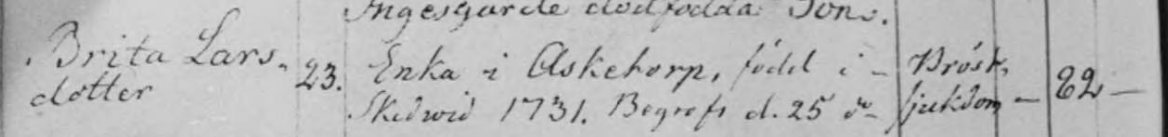 Ingesgärde dödfödda Son.
Brita Lars- 23. Enka i Asketorp, född i Bröst-
dotter Skedwid 1731. Begrofs d. 25 d:o sjukdom — 82 —